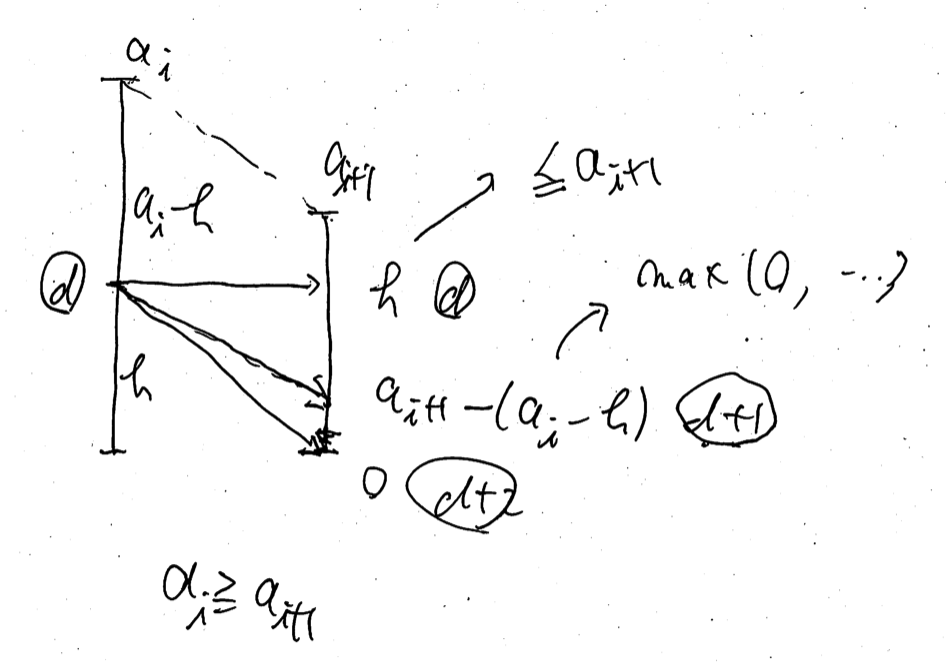 a_i
a_{i+1}
≦ a_{i+1}
a_i - h
max(0, ...)
d
h d
h
a_{i+1} - (a_i - h) d+1
0 d+2
a_i ≧ a_{i+1}